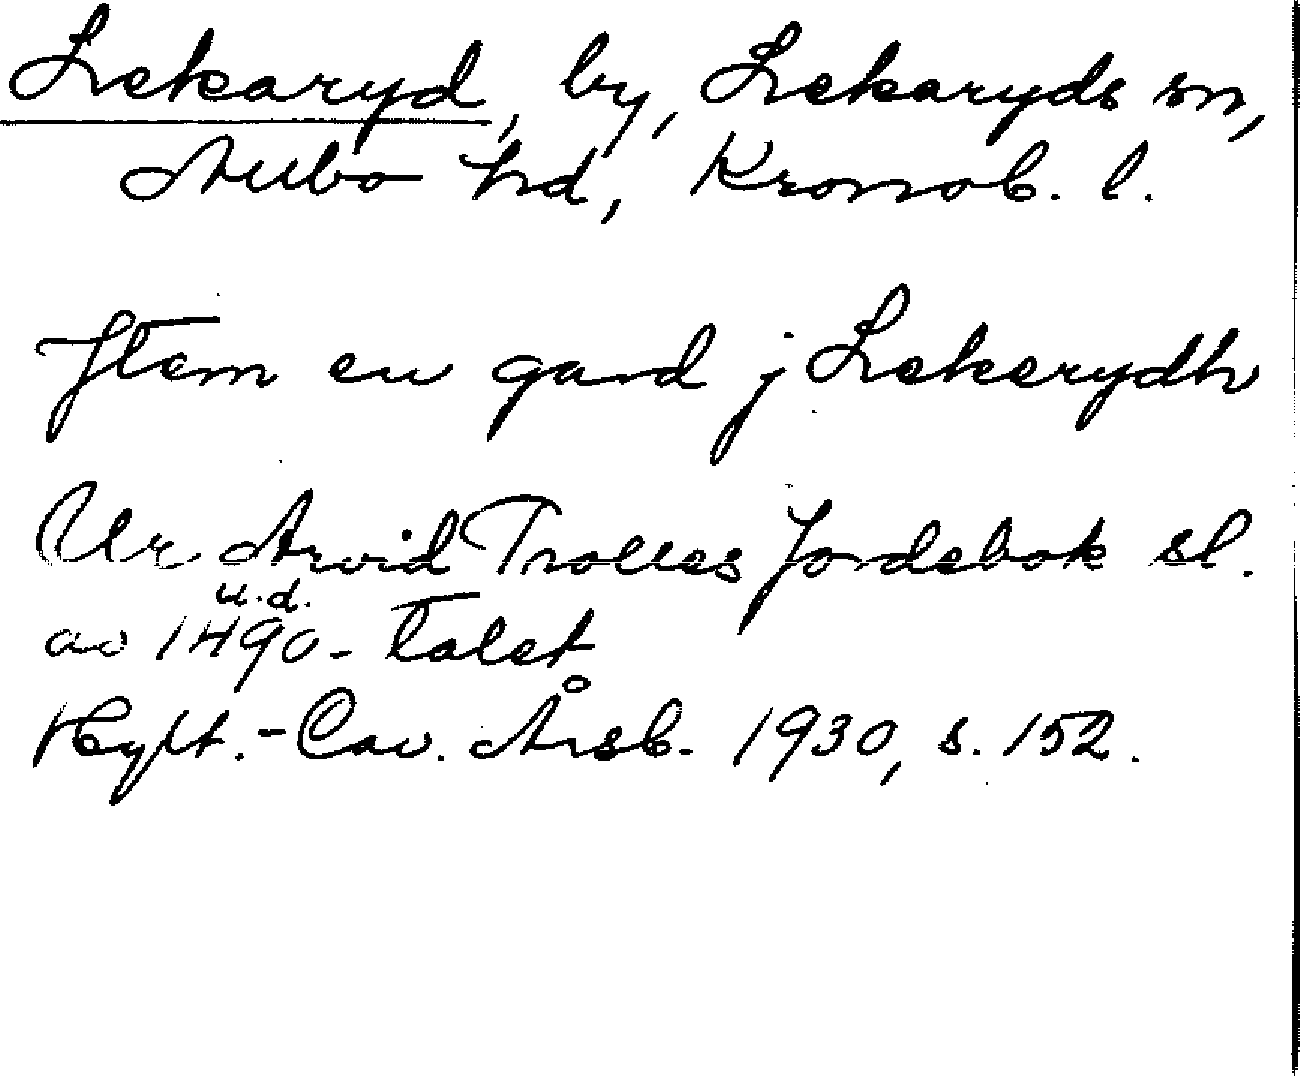 Lekaryd, by, Lekaryds sn,
Allbo hd, Kronob. l.
Jtem en gard j Lekerydh
Ur Arvid Trolles Jordebok sl.
u.d.
av 1490-talet
Hylt.-Cav. Årsb. 1930, s. 152.